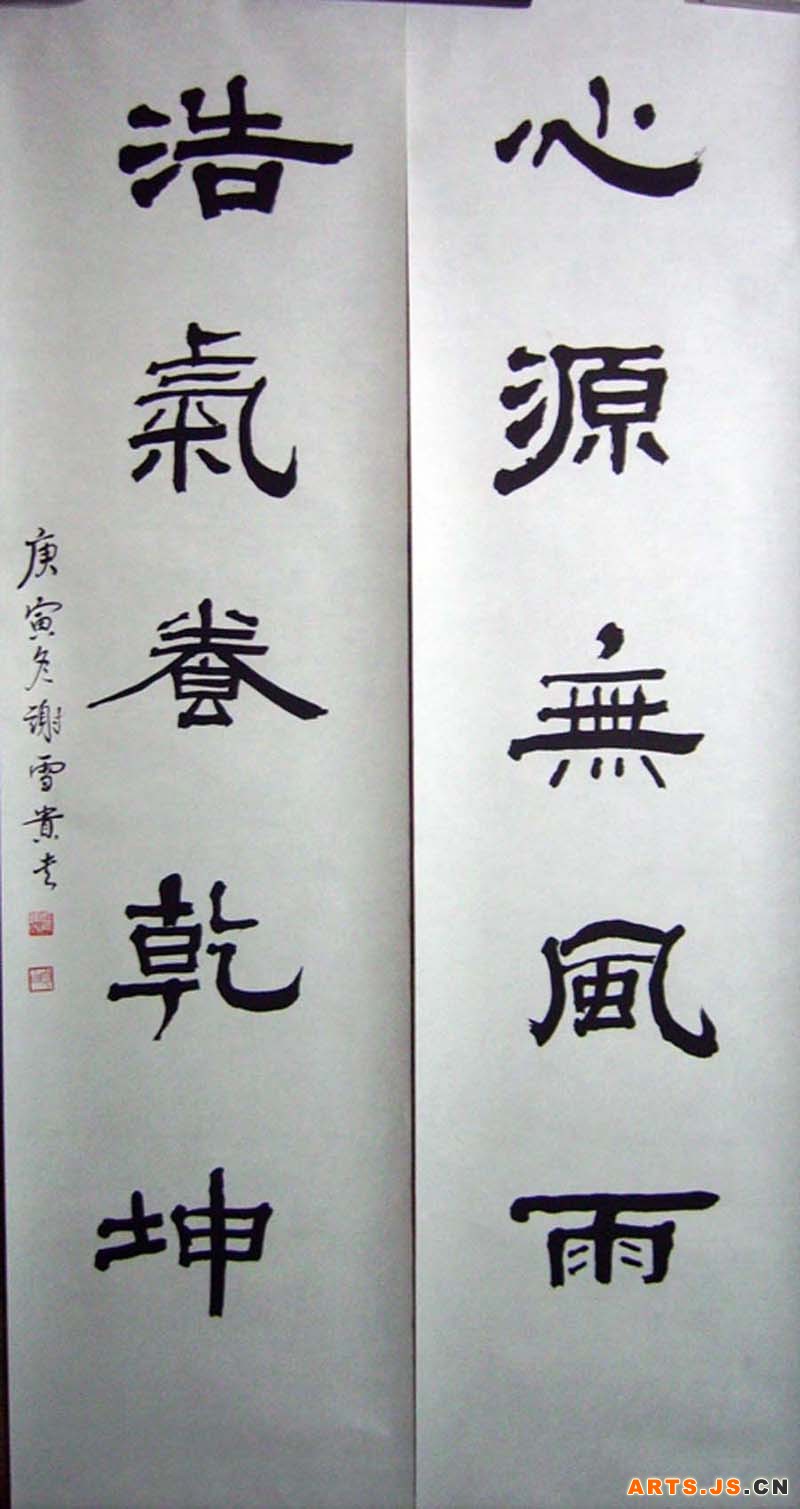 心源無風雨
浩氣養乾坤
庚寅冬謝雪貴书
ARTS.JS.CN